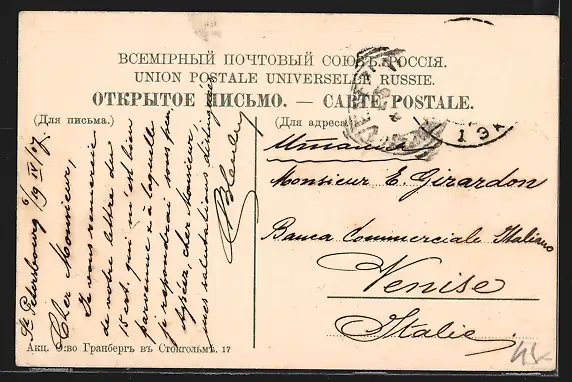 ВСЕМІРНЫЙ ПОЧТОВЫЙ СОЮЗЪ. РОССІЯ.
UNION POSTALE UNIVERSELLE. RUSSIE.
ОТКРЫТОЕ ПИСЬМО. — CARTE POSTALE.
(Для письма.)
St Petersbourg 6/19 IV/07.
Cher Monsieur,
Je vous remercie
de votre lettre du
15 ct. qui m'est bien
parvenue & à laquelle
je répondrai sous peu.
cher Monsieur,
mes salutations distinguées
(Для адреса)
Италія
Monsieur E. Girardon
Banca Commerciale Italiana
Venise
Italie
Акц. О-во Гранбергъ въ Стокгольмѣ. 17